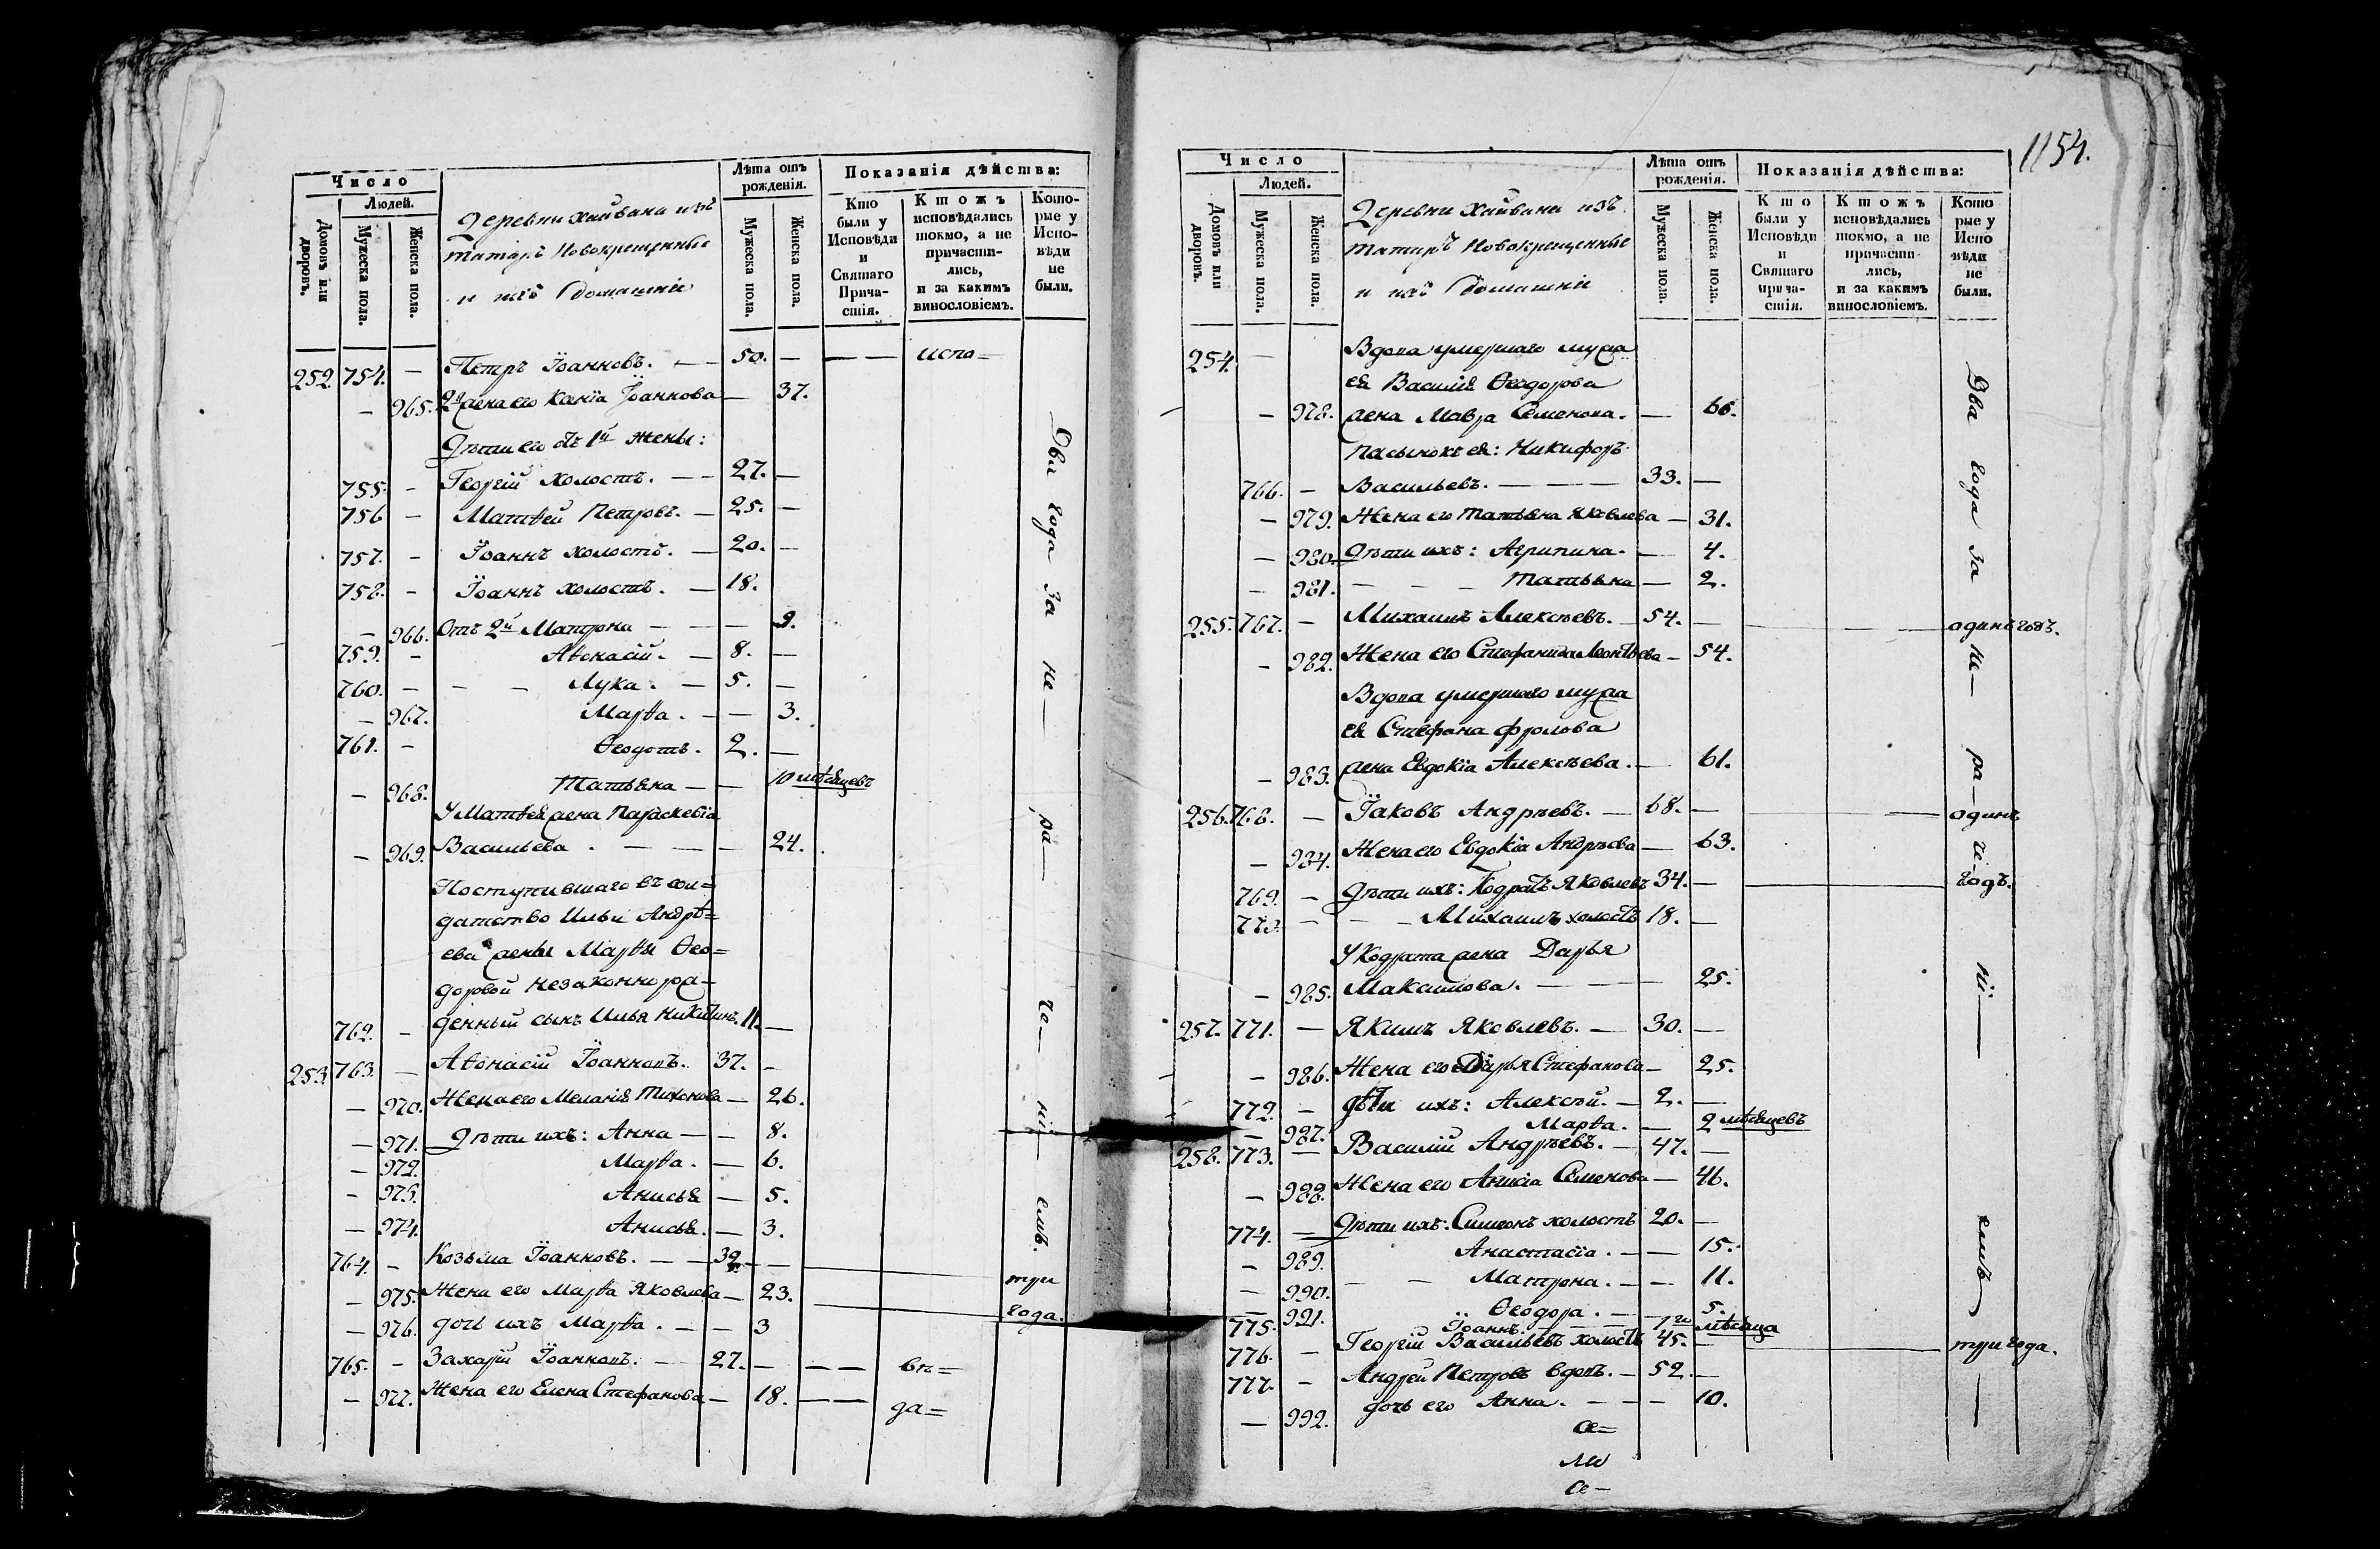 Число
Людей.
Домовъ или дворовъ.
Мужеска пола.
Женска пола.
Деревни Хайвани изъ
татаръ Новокрещенные
и ихъ домашніе
Лѣта отъ рожденія.
Мужеска пола.
Женска пола.
Показанія дѣйства:
Кто были у Исповѣди и Святаго Причастія.
Ктожъ исповѣдались токмо, а не причастились, и за какимъ винословіемъ.
Которые у Исповѣди не были.
252. 754. — Петръ Іоанновъ. — 50. — — — испо=
— 965. 2я жена его Ксенія Іоаннова — 37.
Дѣти его отъ 1й жены:
755. — Георгій холостъ. — — 27. —
756 — Матѳей Петровъ. — 25. —
757. — Іоаннъ холостъ. — 20. —
758. — Іоаннъ холостъ. — 18.
— 966. Отъ 2й Матрона — — — 9.
759. — Аѳонасій. — 8. —
760. — — — Лука. — 5. —
— 967. Марѳа. — — 3.
761. — Ѳеодотъ. 2. —
— 968. Татьяна — — 10 мѣсяцевъ
У Матѳея жена Параскевіа
— 969. Васильева. — — — 24.
Поступившаго въ сол=
датство Ильи Андрѣ=
ева жены Марѳы Ѳео=
доровой незаконнорож=
762. — денный сынъ Илья Никитинъ. 11. —
253. 763. — Аѳонасій Іоанновъ. 37. —
— 970. Жена его Меланія Тихонова — 26.
— 971. Дѣти ихъ: Анна — — 8.
— 972. Марѳа. — 6.
— 973. Анисья — 5.
— 974. Анисья. — 3.
764. — Козьма Іоанновъ. — — 32. — три
— 975. Жена его Марѳа Яковлева — 23. — года.
— 976. дочь ихъ Марѳа. — — 3
765. — Захарій Іоанновъ. — 27. — — — вѣ=
— 977. Жена его Елена Стефанова — 18. — — да=
Два года за не— ра— че— ніемъ.
1154.
Число
Людей.
Домовъ или дворовъ.
Мужеска пола.
Женска пола.
Деревни Хайвани изъ
татаръ Новокрещенные
и ихъ домашніе
Лѣта отъ рожденія.
Мужеска пола.
Женска пола.
Показанія дѣйства:
Кто были у Исповѣди и Святаго причастія.
Ктожъ исповѣдались токмо, а не причастились, и за какимъ винословіемъ.
Которые у Исповѣди не были.
254. — Вдова умершаго мужа
ея Василія Ѳеодорова
— 978. жена Мавра Семенова. — 66.
Пасынокъ ея: Никифоръ
766. — Васильевъ. — — — 33. —
— 979. Жена его Татьяна Яковлева — 31.
— 980. Дѣти ихъ: Агрипина. — 4.
— 981. — — — Татьяна — 2.
255. 767. — Михаилъ Алексѣевъ. — 54. — — одинъ годъ.
— 982. Жена его Стефанида Леонтьева — 54.
Вдова умершаго мужа
ея Стефана Фролова
— 983. жена Евдокіа Алексѣева. — 61.
256. 768. — Іаковъ Андрѣевъ. — 68. — — одинъ
— 984. Жена его Евдокіа Андрѣева — 63.
769. — Дѣти ихъ: Кодратъ Яковлевъ 34. — — годъ.
770. — — — Михаилъ холостъ 18. —
У Кодрата жена Дарья
— 985. Максимова. — — — 25.
257. 771. — Якимъ Яковлевъ. — 30. —
— 986. Жена его Дарья Стефанова — 25.
772. — дѣти ихъ: Алексѣй. — 2. —
— 987. Марѳа. — 2 мѣсяцевъ
258. 773. — Василій Андрѣевъ. — 47. —
— 988. Жена его Анисіа Семенова — 46.
774. — Дѣти ихъ: Симеонъ холостъ 20. —
— 989. Анастасіа. — — 15.
— 990. — — Матрона. — — 11.
— 991. Ѳеодора. — — 5.
775. Іоаннъ. — — — 1го мѣсяца
776. — Георгій Васильевъ холостъ 45. — — три года.
777. — Андрей Петровъ вдовъ. — 52. —
— 992. дочь его Анна. — — — 10.
Два года за не— ра— че— ні— емъ